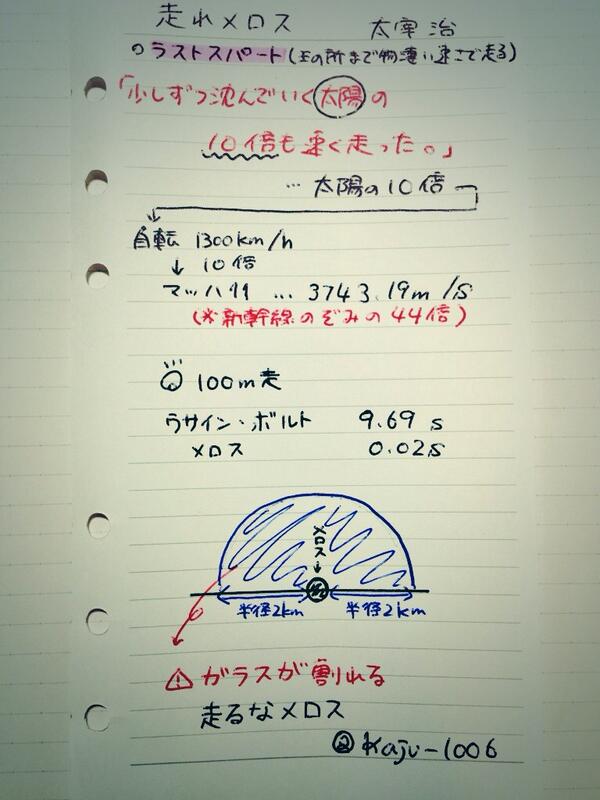 走れメロス　太宰治
○ラストスパート(王の所まで物凄い速さで走る)
「少しずつ沈んでいく太陽の
10倍も速く走った。」
… 太陽の10倍
自転 1300km/h
↓ 10倍
マッハ11 … 3743.19m/s
(※新幹線のぞみの44倍)
100m走
ウサイン・ボルト 9.69 s
メロス 0.02s
メロス
半径2km 半径2km
⚠ガラスが割れる
走るなメロス
@Kaju-1006